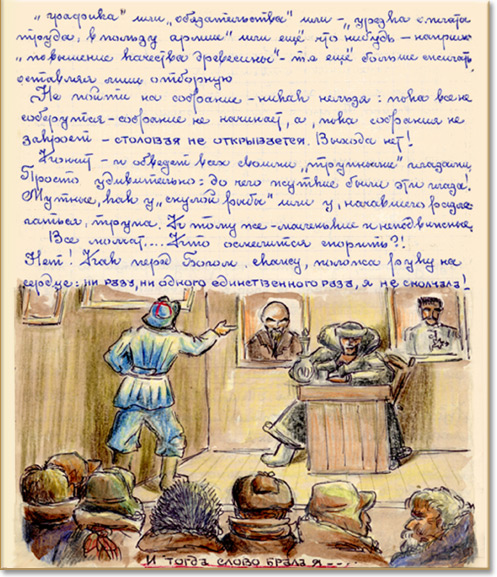 „графика" или „обязательства" или – „урезка с'экста
труда, в пользу армии" или ещё что нибудь – наприм.
„повышение качества древесины" – т.е ещё больше списать,
оставляя лишь отборную
Не пойти на собрание – никак нельзя: пока все не
соберутся – собрание не начинают, а, пока собрания не
закроют – столовая не открывается. Выхода нет!
и обведет всех своими „трупными" глазами.
Просто удивительно: до чего жуткие были эти глаза!
Мутные, как у „снулой рыбы" или у, начавшего разла-
гаться, трупа. К тому же – маленькие и неподвижные.
Все молчат.... Кто осмелится спорить?!
Нет! Как перед Богом скажу, положа руку на
сердце: ни разу, ни одного единственного раза, я не смолчала!
И тогда слово брала я....